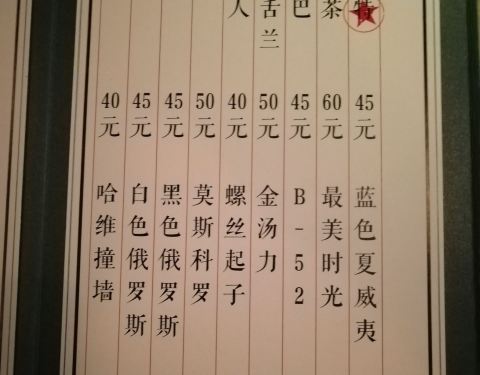 特
45元
蓝色夏威夷
茶
60元
最美时光
巴
45元
B-52
舌兰
50元
金汤力
人
40元
螺丝起子
50元
莫斯科罗
45元
黑色俄罗斯
45元
白色俄罗斯
40元
哈维撞墙